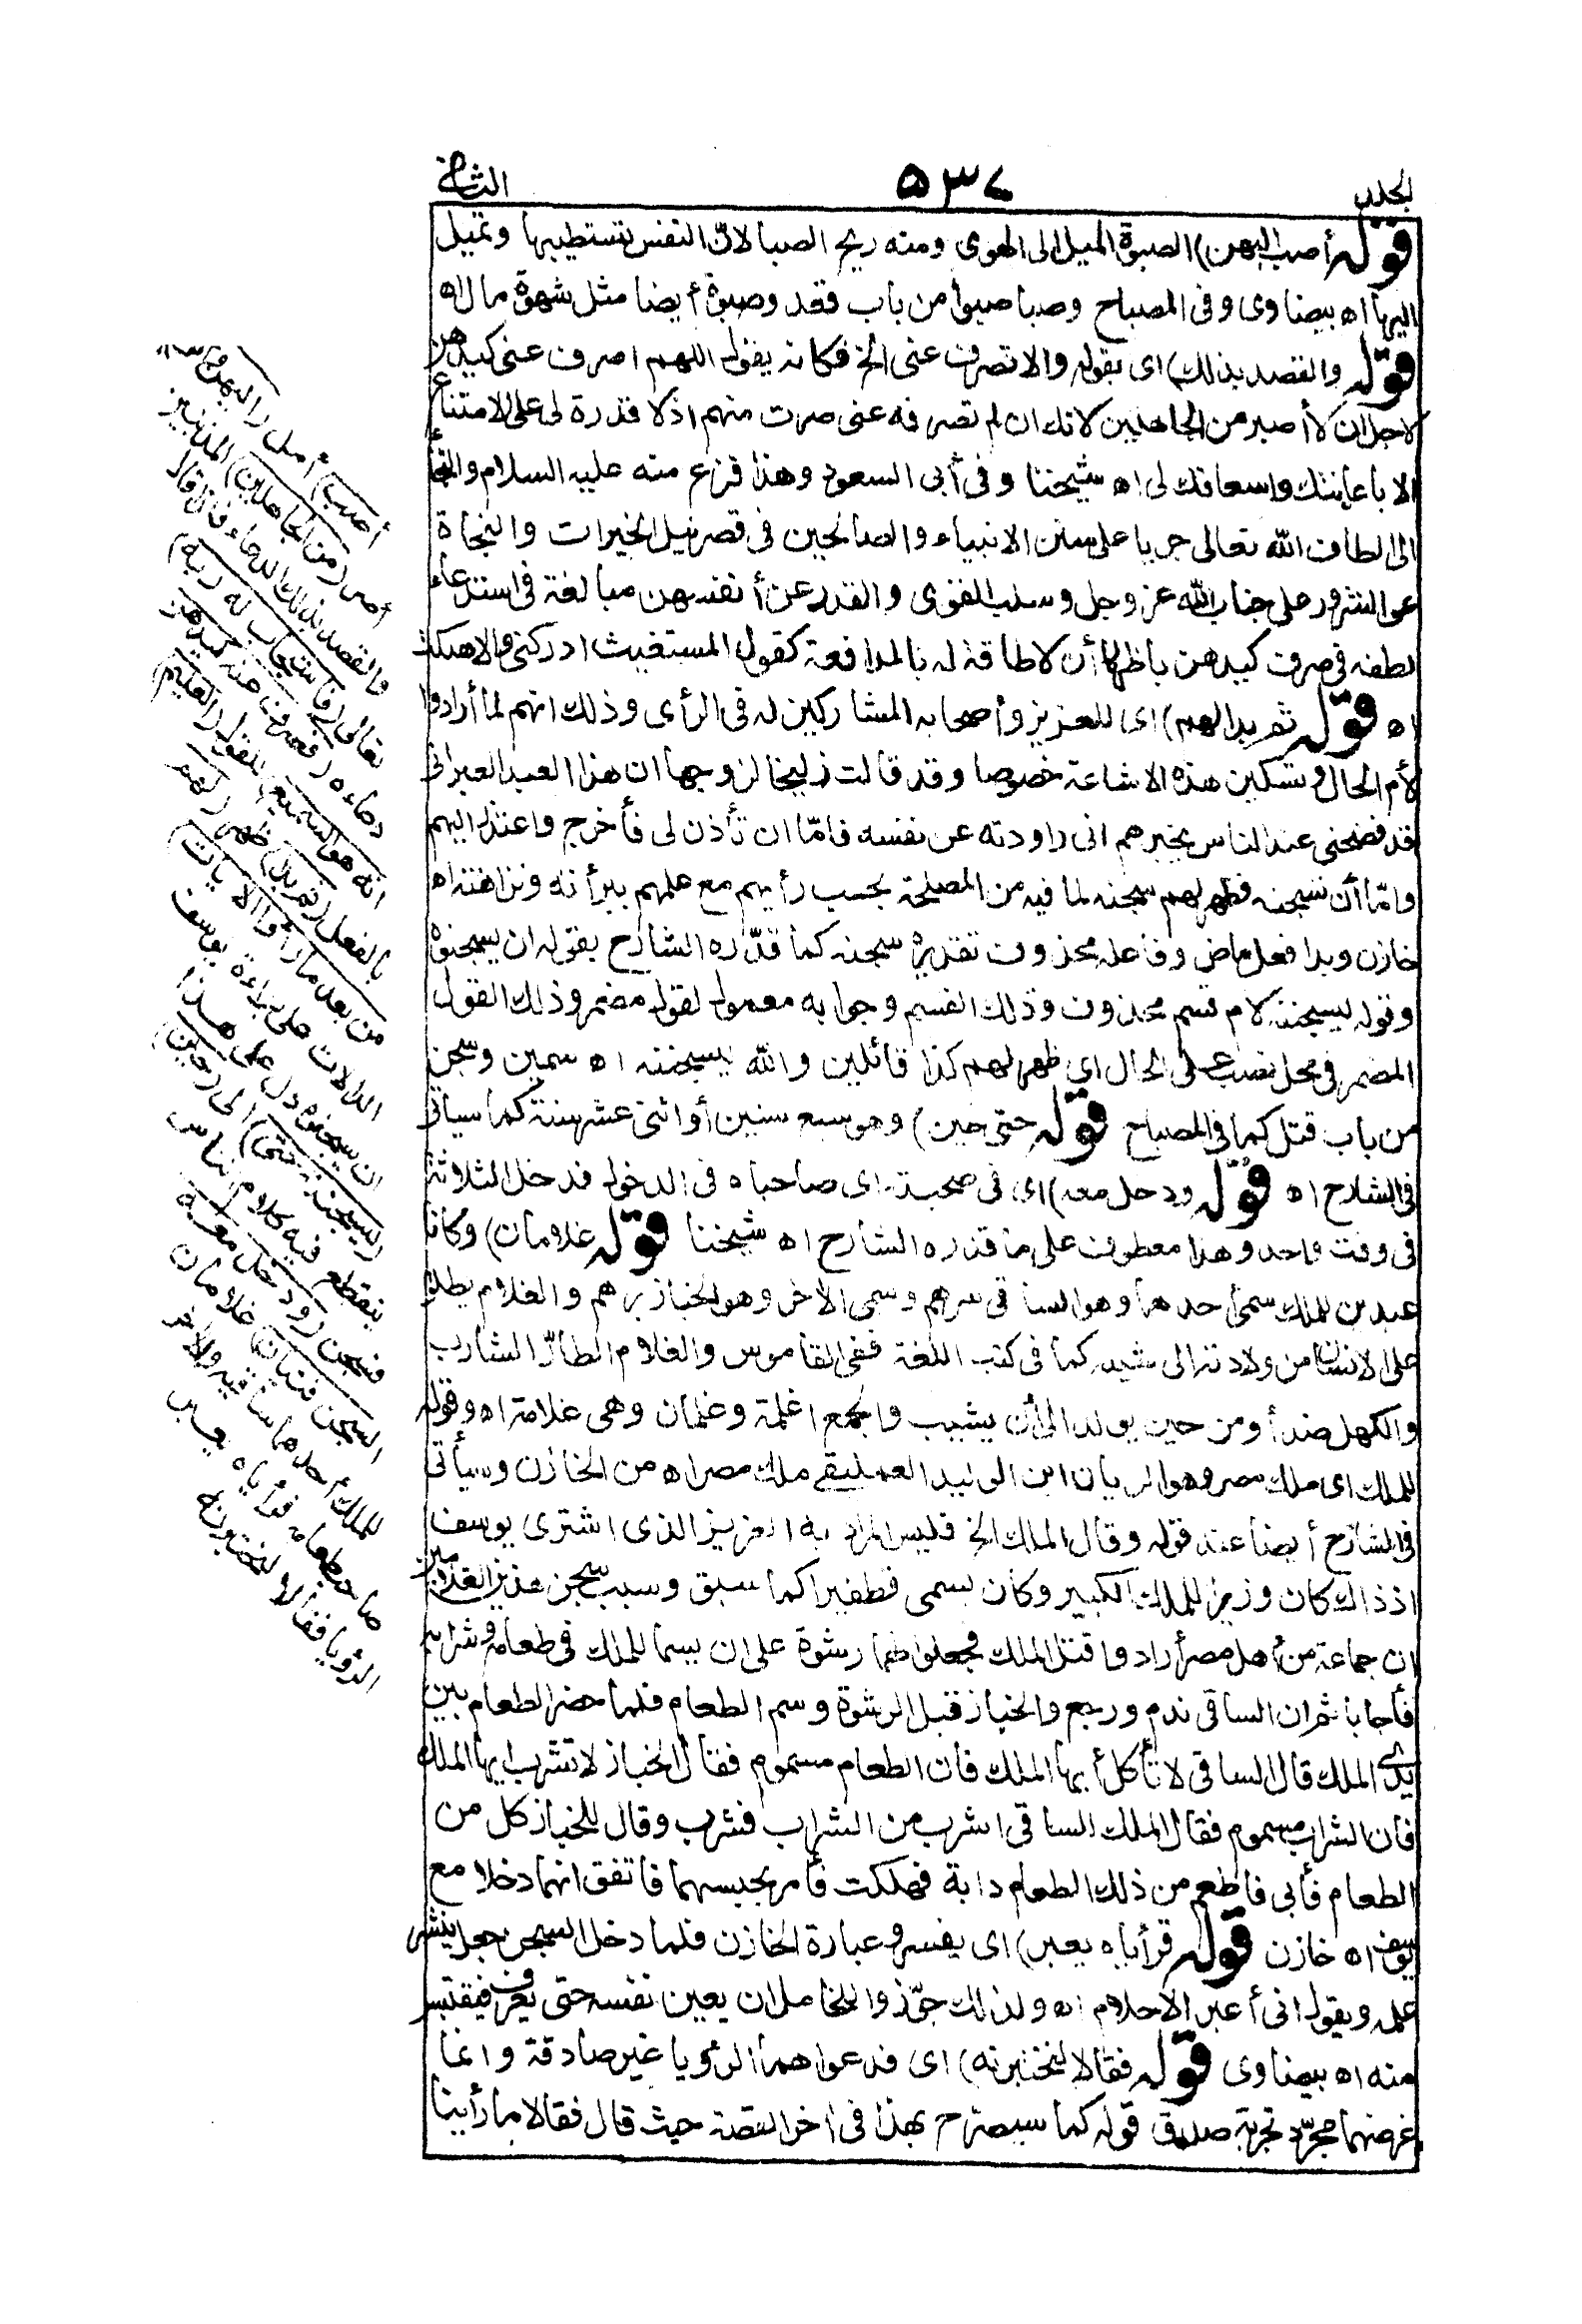 الجلد
٥٣٧
الثانى
قوله أصب اليهن) الصبوة الميل الى الهوى ومنه ريح الصبا لانّ النفس تستطيبها وتميل
اليها اه بيضاوى وفى المصباح وصبا صبوا من باب قعد وصبوة أيضا مثل شهوة مال اه
قوله والقصد بذلك) اى بقوله والا تصرف عنى الخ فكانه يقول اللهم اصرف عنى كيدهن
لاجل ان لا أصير من الجاهلين لانك ان لم تصرفه عنى صرت منهم اذ لا قدرة لى على الامتناع
الا باعانتك واسعافك لى اه شيخنا وفى أبى السعود وهذا فزع منه عليه السلام والتجأ
الى الطاف الله تعالى جريا على سنن الانبياء والصالحين فى قصر نيل الخيرات والنجاة
عن الشرور على جناب الله عز وجل وسلب القوى والقدر عن أنفسهن مبالغة فى استدعاء
لطفه فى صرف كيدهن باظهار أن لا طاقة له بالمدافعة كقول المستغيث ادركنى والا هلكت
اه قوله ثم بدا لهم) اى للعزيز وأصحابه المشاركين له فى الرأى وذلك انهم لما أرادوا
لأم الحال وتسكين هذه الاشاعة خصوصا وقد قالت زليخا لزوجها ان هذا العبد العبرانى
قد فضحنى عند الناس يخبرهم انى راودته عن نفسه فامّا ان تأذن لى فأخرج واعتذر اليهم
وامّا أن تسجنه فظهر لهم سجنه لما فيه من المصلحة بحسب رأيهم مع علمهم ببرأته ونزاهته اه
خازن وبدا فعل ماض وفاعله محذوف تقديره سجنه كما قدّره الشارح بقوله ان يسجنوه
وقوله ليسجننه لام قسم محذوف وذلك القسم وجوابه معمول لقول مضمر وذلك القول
المضمر فى محل نصب على الحال اى ظهر لهم كذا قائلين والله ليسجننه اه سمين وسجن
من باب قتل كما فى المصباح قوله حتى حين) وهو سبع سنين أو اثنى عشر سنة كما سيأتى
فى الشارح اه قوله ودخل معه) اى فى صحبته اى صاحباه فى الدخول فدخل الثلاثة
فى وقت واحد وهذا معطوف على ما قدره الشارح اه شيخنا قوله غلامان) وكانا
عبدين للملك سمى أحدهما وهو الساقى سرهم وسمى الآخر وهو الخباز برهم والغلام يطلق
على الانسان من ولادته الى شيبه كما فى كتب اللغة ففى القاموس والغلام الطارّ الشارب
والكهل ضد أو من حين يولد الى أن يشيب والجمع اغلمة وغلمان وهى غلامة اه وقوله
للملك اى ملك مصر وهو الريان ابن الوليد العمليقى ملك مصر اه من الخازن وسيأتى
فى الشارح أيضا عند قوله وقال الملك الخ فليس المراد به العزيز الذى اشترى يوسف
اذ ذاك كان وزيرا للملك الكبير وكان يسمى قطفيرا كما سبق وسبب سجن هذين الغلامين
ان جماعة من أهل مصر أرادوا قتل الملك فجعلوا لهما رشوة على ان يسما للملك فى طعامه وشرابه
فأجابا ثم ان الساقى ندم ورجع والخباز قبل الرشوة وسم الطعام فلما حضر الطعام بين
يدى الملك قال الساقى لا تأكل أيها الملك فان الطعام مسموم فقال الخباز لا تشرب ايها الملك
فان الشراب مسموم فقال الملك للساقى اشرب من الشراب فشرب وقال للخباز كل من
الطعام فأبى فاطعم من ذلك الطعام دابة فهلكت فأمر بحبسهما فاتفق انهما دخلا مع
يوسف اه خازن قوله فرأياه يعبر) اى يفسر وعبارة الخازن فلما دخل السجن جعل ينشر
علمه ويقول انى أعبر الاحلام اه ولذلك جوّزوا للخامل ان يعين نفسه حتى يعرف فيقتبس
منه اه بيضاوى قوله فقالا لنختبرنه) اى فدعواهما الرؤيا غير صادقة وانما
غرضهما مجرّد تجربة صدق قوله كما سيصرّح بهذا فى اخر القصة حيث قال فقالا ما رأينا
أصب) أمل (اليهن وأكن
أصر (من الجاهلين) المذنبين
والقصد بذلك الدعاء فلذا قال
تعالى (فاستجاب له ربه)
دعاءه (فصرف عنه كيدهن
انه هو السميع) للقول (العليم)
بالفعل (ثم بدا) ظهر (لهم
من بعد ما رأوا الآيات)
الدالات على براءة يوسف
ان يسجنوه دل على هذا
(ليسجننه حتى) الى (حين)
ينقطع فيه كلام الناس
فسجن (ودخل معه
السجن فتيان) غلامان
للملك أحدهما ساقيه والآخر
صاحب طعامه فرأياه يعبر
الرؤيا فقالا لنختبرنه